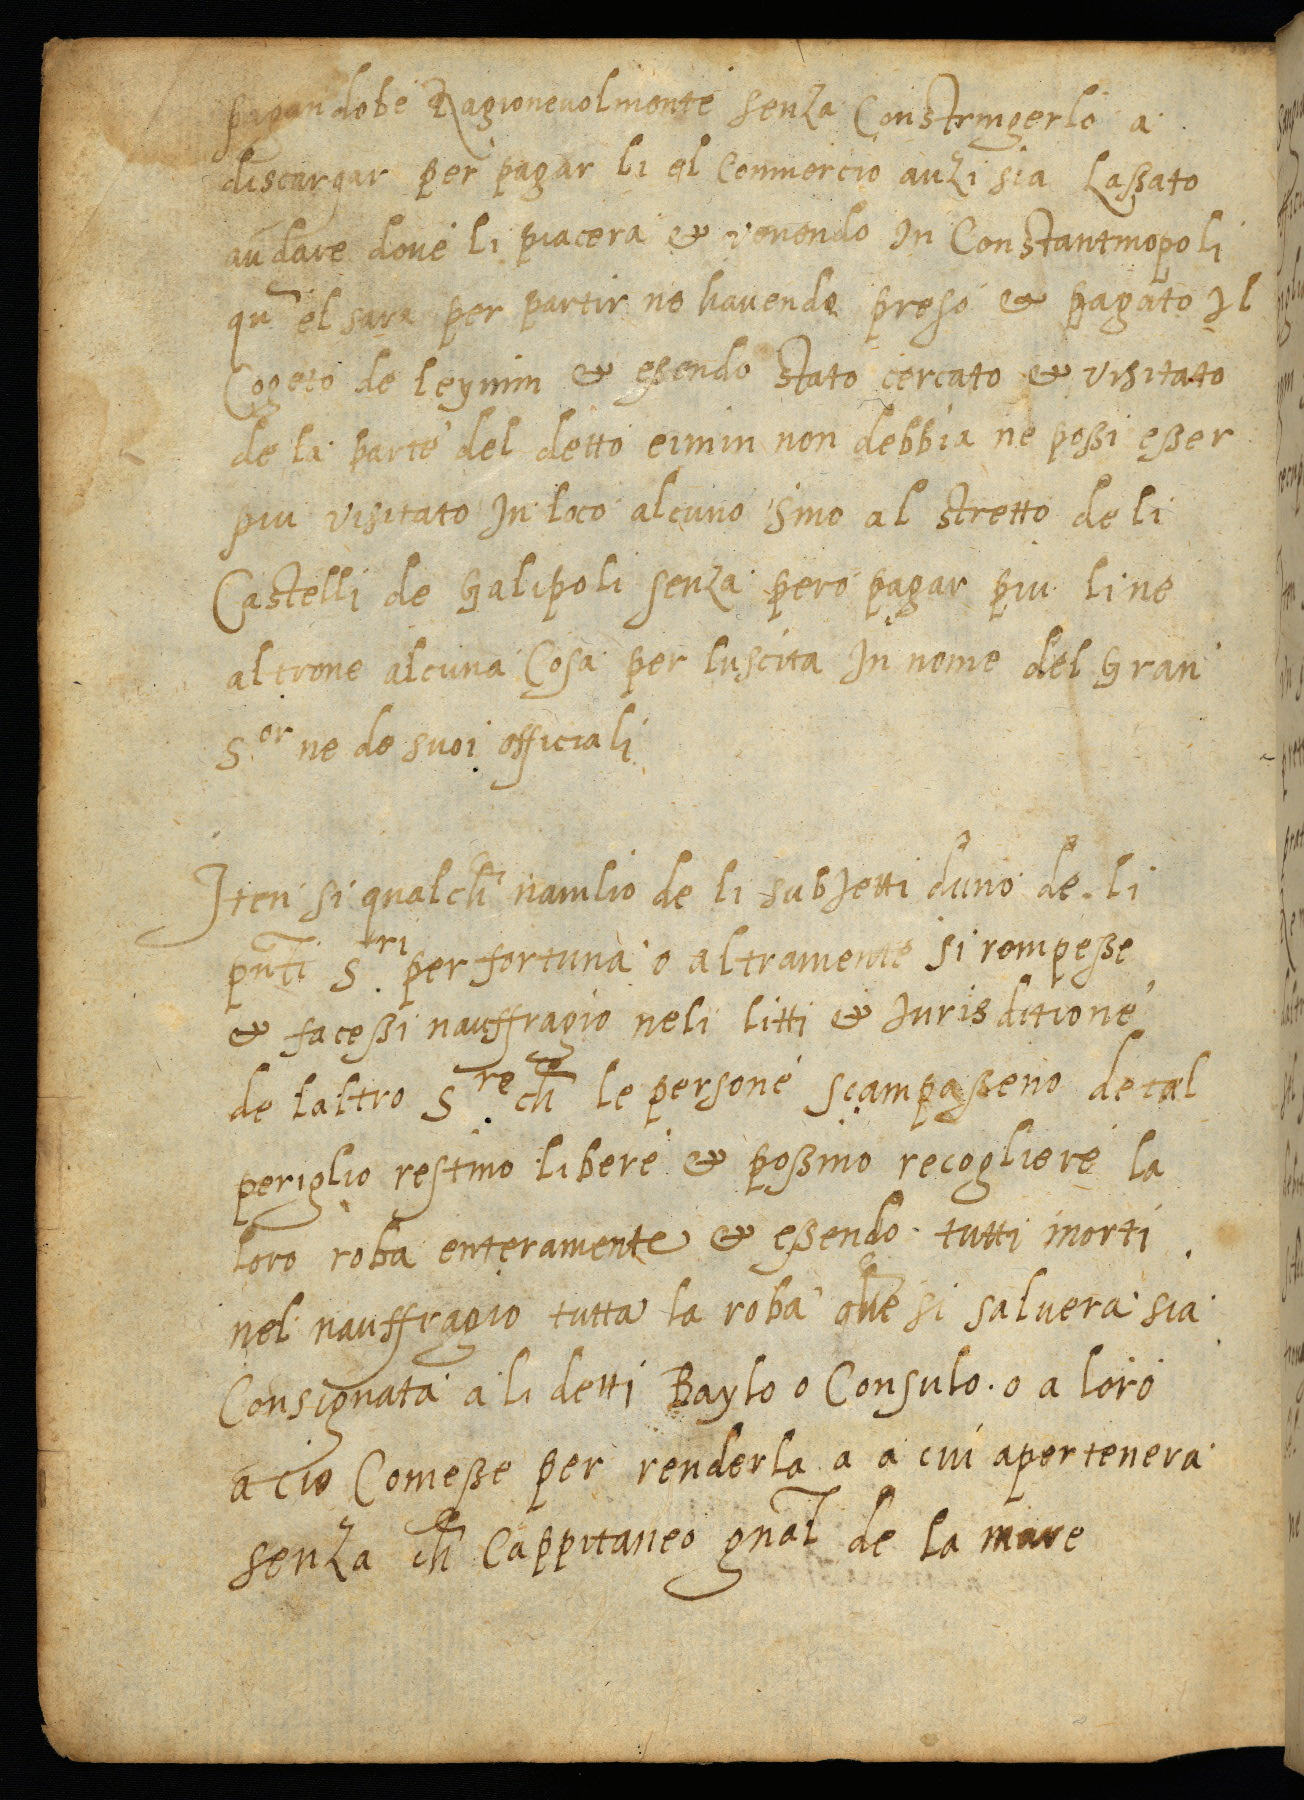 pagandole Ragioneuolmente senza Constringerlo a
discargar per pagar li el Commercio anzi sia Lassato
andare doue li piacera & venendo In Constantinopoli
qñ el sara per partir ne hauendo preso & pagato Il
Cogeto de leymin & essendo stato cercato & visitato
de la parte del detto eimin non debbia ne possi esser
piu visitato In loco alcuno sino al stretto de li
Castelli de Galipoli senza pero pagar piu li ne
altrone alcuna Cosa per luscita In nome del Gran
S.or ne de suoi officiali
Iten si qualch nauilio de li subJetti duno de. li
pñti S.ri per fortuna o altramente si rompesse
& facessi nauffragio neli litti & Jurisditione
de laltro S.re ch le persone scampasseno de tal
periglio restino libere & possino recogliere la
loro roba enteramente & essendo tutti morti
nel nauffragio tutta la roba que si saluera sia
Consignata a li detti Baylo o Consulo. o a loro
a cio Comesse per renderla a a cui apertenera
senza ch Cappitaneo gnal de la mare